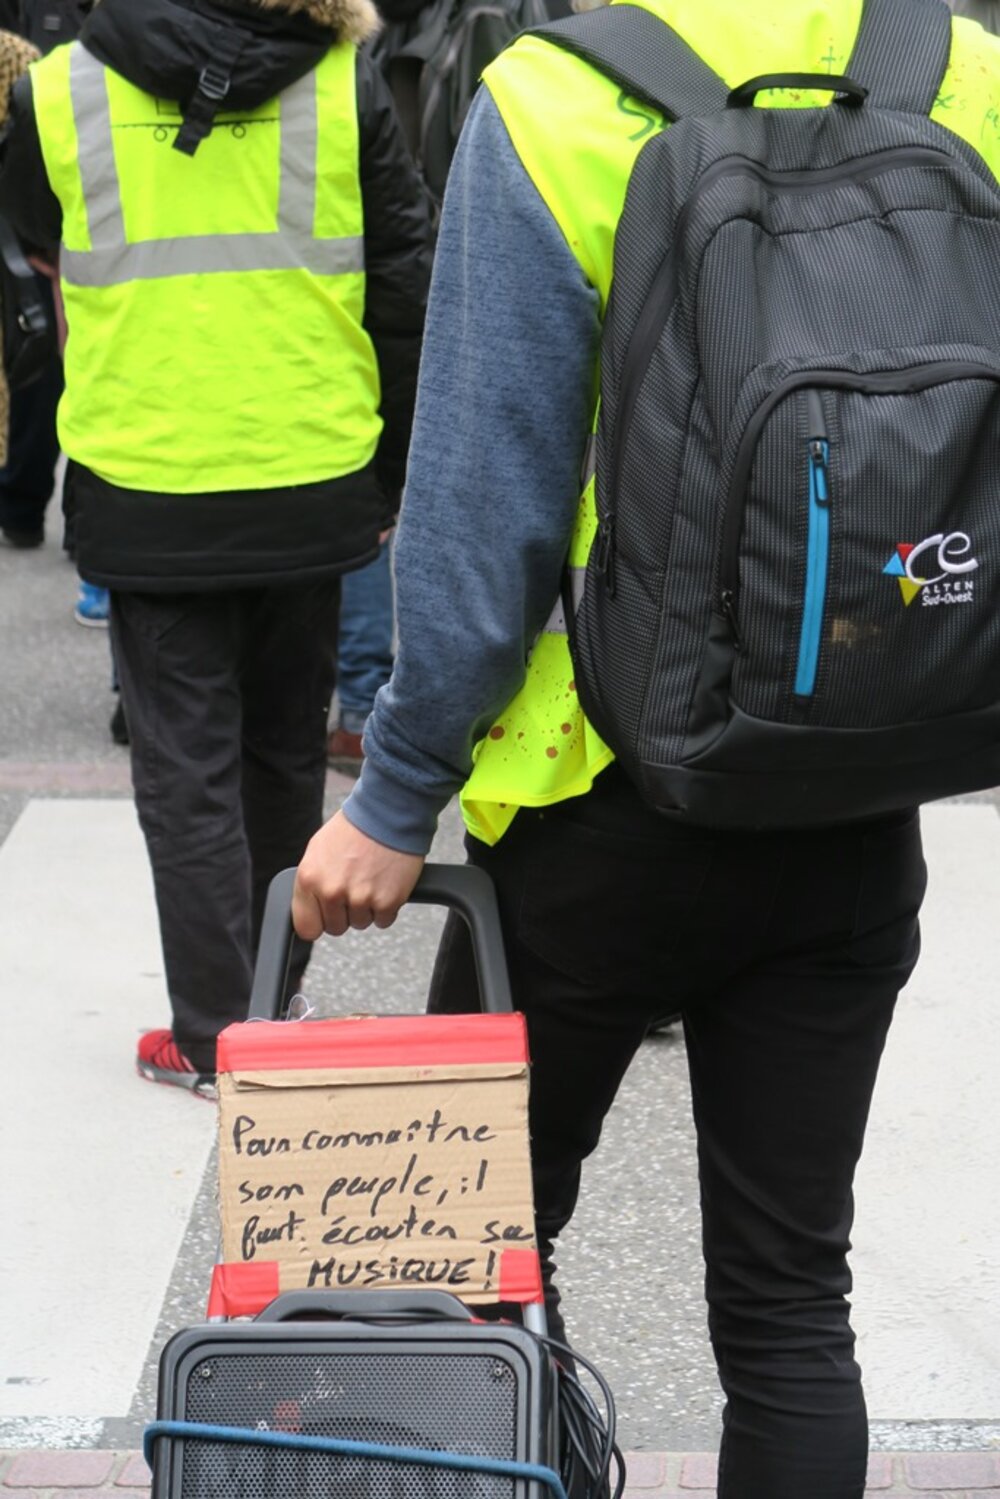 ce
ALTEN
Sud-Ouest
Pour connaître
son peuple, il
faut écouter sa
MUSIQUE!